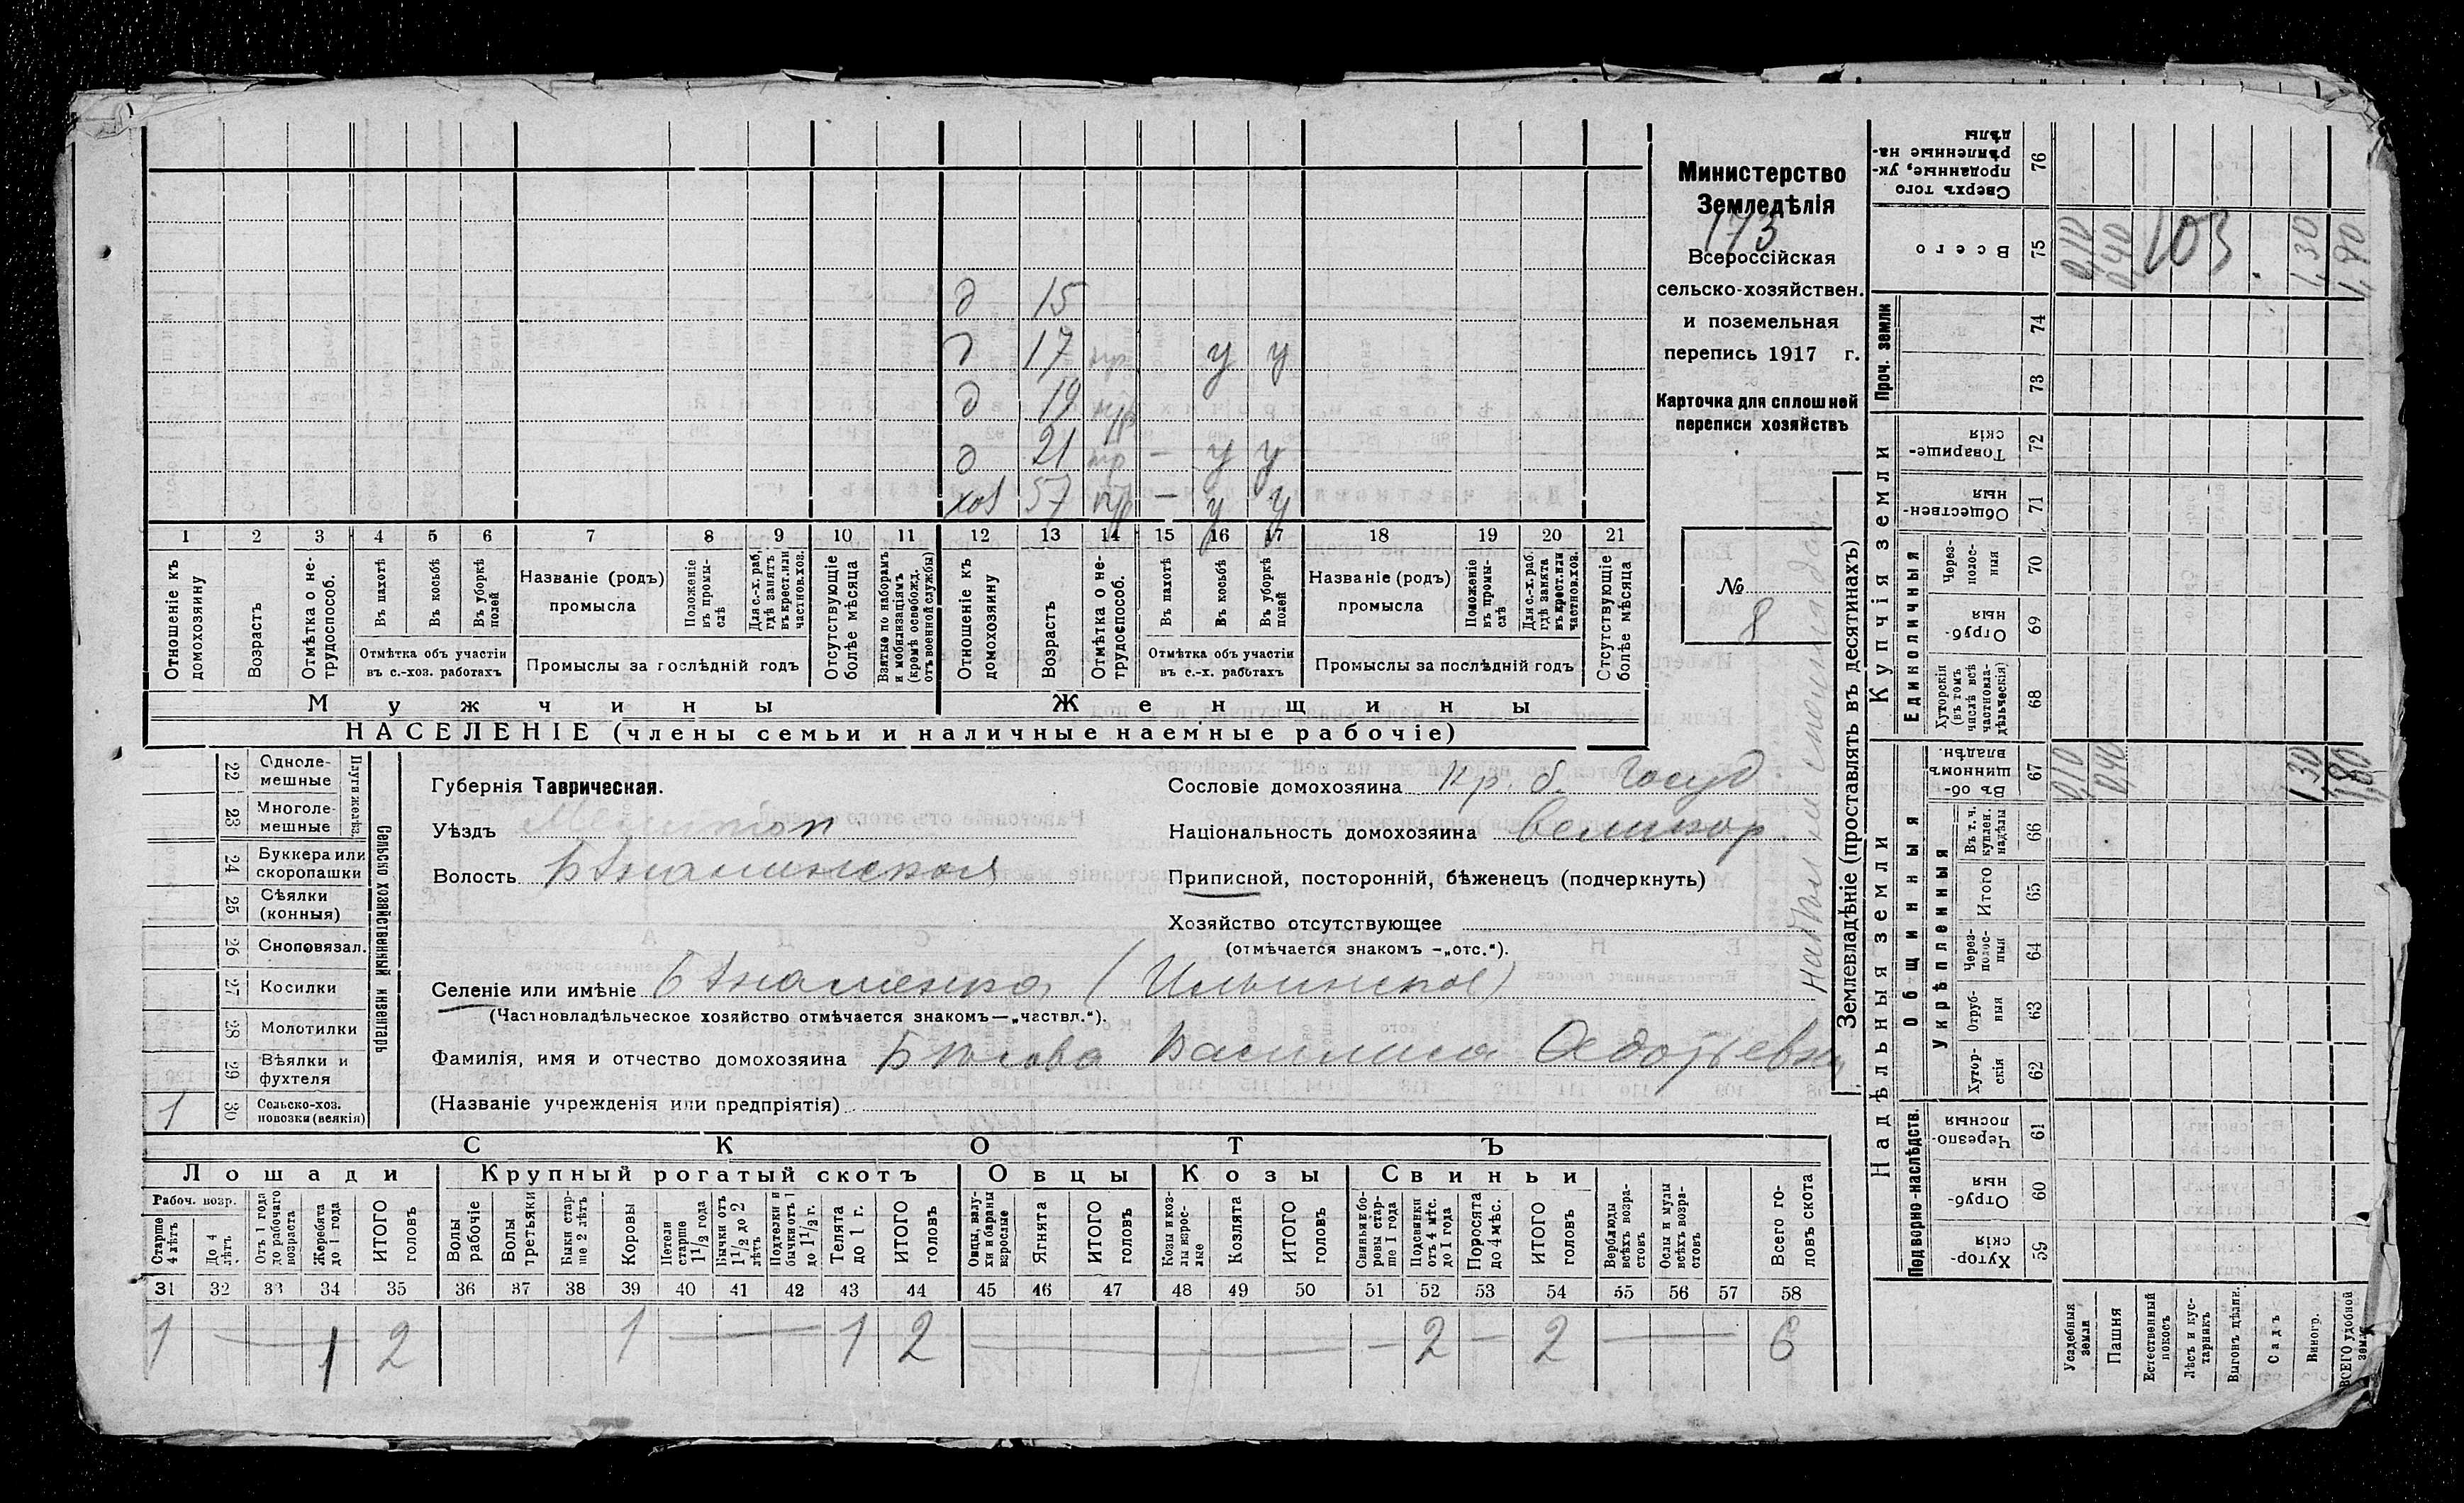 Министерство
Земледѣлія
173
Всероссійская
сельско-хозяйствен.
и поземельная
перепись 1917 г.
Карточка для сплошной
переписи хозяйствъ
№
8
д 15
д 17 нр у у
д 19 нр
д 21 нр — у у
хоз 57 нр — у у
1 2 3 4 5 6 7 8 9 10 11 12 13 14 15 16 17 18 19 20 21
Отношеніе къ домохозяину
Возрастъ
Отмѣтка о не-трудоспособ.
Въ пахотѣ
Въ косьбѣ
Въ уборкѣ полей
Отмѣтка объ участіи
въ с.-хоз. работахъ
Названіе (родъ)
промысла
Положеніе въ промы-слѣ
Для с.-х. раб, гдѣ занятъ въ крест. или частнов. хоз.
Промыслы за послѣдній годъ
Отсутствующіе болѣе мѣсяца
Взятые по наборамъ и мобилизаціямъ (кромѣ освобожд. отъ военной службы)
Отношеніе къ домохозяину
Возрастъ
Отмѣтка о не-трудоспособ.
Въ пахотѣ
Въ косьбѣ
Въ уборкѣ полей
Отмѣтка объ участіи
въ с.-х. работахъ
Названіе (родъ)
промысла
Положеніе въ промы-слѣ
Для с.-х. раб. гдѣ занята въ крест. или частнов. хоз.
Промыслы за послѣдній годъ
Отсутствующіе болѣе мѣсяца
Мужчины
Женщины
НАСЕЛЕНІЕ (члены семьи и наличные наемные рабочіе)
Сельско хозяйственный инвентарь
Плуги желѣз.
22 Однолемешные
23 Многолемешные
24 Буккера или скоропашки
25 Сѣялки (конныя)
26 Сноповязал.
27 Косилки
28 Молотилки
29 Вѣялки и фухтеля
1 30 Сельско-хоз. повозки (всякія)
Губернія Таврическая.
Уѣздъ Мелитоп
Волость Б Знаменская
Сословіе домохозяина Кр. б. Госуд
Національность домохозяина великор
Приписной, посторонній, бѣженецъ (подчеркнуть)
Хозяйство отсутствующее
(отмѣчается знакомъ -„отс.“).
Селеніе или имѣніе Б Знаменка (Ильинское)
(Частновладѣльческое хозяйство отмѣчается знакомъ—„частвл.“).
Фамилія, имя и отчество домохозяина Василиса
(Названіе учрежденія или предпріятія)
СКОТЪ
Лошади
Крупный рогатый скотъ
Овцы
Козы
Свиньи
Рабоч. возр.
Старше 4 лѣтъ
До 4 лѣтъ
Отъ 1 года до рабочаго возраста
Жеребята до 1 года
ИТОГО головъ
Волы рабочіе
Волы третьяки
Быки старше 2 лѣтъ
Коровы
Нетели старше 1½ года
Бычки отъ 1½ до 2 лѣтъ
Подтелки и бычки отъ 1 до 1½ г.
Телята до 1 г.
ИТОГО головъ
Овцы, валухи и бараны взрослые
Ягнята
ИТОГО головъ
Козы и козлы взрослые
Козлята
ИТОГО головъ
Свиньи и боровы старше 1 года
Подсвинки отъ 4 мѣс. до 1 года
Поросята до 4 мѣс.
ИТОГО головъ
Верблюды всѣхъ возрастовъ
Ослы и мулы всѣхъ возрастовъ
Всего головъ скота
31 32 33 34 35 36 37 38 39 40 41 42 43 44 45 46 47 48 49 50 51 52 53 54 55 56 57 58
1 — 1 2 1 — 1 2 — — 2 — 2 — 6
Землевладѣніе (проставлять въ десятинахъ)
Надѣльныя земли
Купчія земли
Проч. земли
Подворно-наслѣдств.
Общинныя
Укрѣпленныя
Единоличныя
Сверхъ того проданные, укрѣпленные надѣлы 76
Всего 75 0,10 0,40 103 1,30 1,80
74
73
Товарищескія 72
Общественныя 71
Черезполосныя 70
Отрубныя 69
Хуторскія (въ томъ числѣ всѣ частновладѣльческія) 68
Въ общинномъ владѣн. 67 0,10 0,40 1,30 1,80
Въ т. ч. куплен. надѣлы 66
Итого 65
Черезполосныя 64
Отрубныя 63
Хуторскія 62
Черезполосныя 61
Отрубныя 60
Хуторскія 59
Усадебныя земли
Пашня
Естественный покосъ
Лѣсъ и кустарникъ
Выгонъ дѣлим.
Садъ
Виногр.
ВСЕГО удобной земли